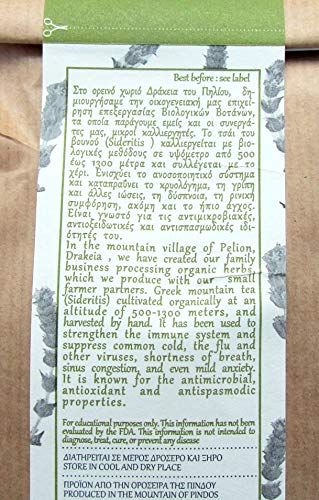 Best before : see label
Στο ορεινό χωριό Δράκεια του Πηλίου, δη-
μιουργήσαμε την οικογενειακή μας επιχεί-
ρηση επεξεργασίας Βιολογικών Βοτάνων,
τα οποία παράγουμε εμείς και οι συνεργά-
τες μας, μικροί καλλιεργητές. Το τσάι του
βουνού (Sideritis ) καλλιεργείται με βιο-
λογικές μεθόδους σε υψόμετρο από 500
έως 1300 μέτρα και συλλέγεται με το
χέρι. Ενισχύει το ανοσοποιητικό σύστημα
και καταπραΰνει το κρυολόγημα, τη γρίπη
και άλλες ιώσεις, τη δύσπνοια, τη ρινική
συμφόρηση, ακόμη και το ήπιο άγχος.
Είναι γνωστό για τις αντιμικροβιακές,
αντιοξειδωτικές και αντισπασμωδικές ιδι-
ότητές του.
In the mountain village of Pelion,
Drakeia , we have created our family
business processing organic herbs
which we produce with our small
farmer partners. Greek mountain tea
(Sideritis) cultivated organically at an
altitude of 500-1300 meters, and
harvested by hand. It has been used to
strengthen the immune system and
suppress common cold, the flu and
other viruses, shortness of breath,
sinus congestion, and even mild anxiety.
It is known for the antimicrobial,
antioxidant and antispasmodic
properties.
For educational purposes only. This information has not been
evaluated by the FDA. This information is not intended to
diagnose, treat, cure, or prevent any disease
ΔΙΑΤΗΡΕΙΤΑΙ ΣΕ ΜΕΡΟΣ ΔΡΟΣΕΡΟ ΚΑΙ ΞΗΡΟ
STORE IN COOL AND DRY PLACE
ΠΡΟΪΟΝ ΑΠΟ ΤΗΝ ΟΡΟΣΕΙΡΑ ΤΗΣ ΠΙΝΔΟΥ
PRODUCED IN THE MOUNTAIN OF PINDOS